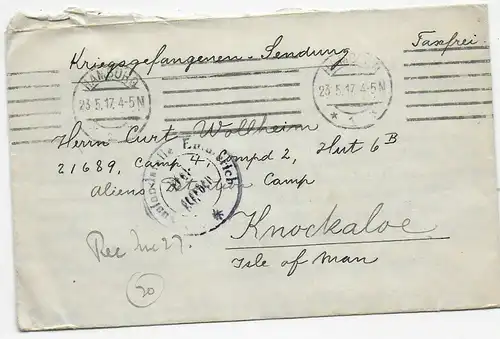 Kriegsgefangenen-Sendung Taxfrei.
HAMBURG
23.5.17.4-5N
23.5.17.4-5N
* 1 *
Herrn Curt Wollheim
21689, Camp 4, Compd 2, Hut 6 B
Aliens Detention Camp
Knockaloe
Isle of Man
Auslandstelle Emmerich
Frei-
gegeben
Rec June 27.
20